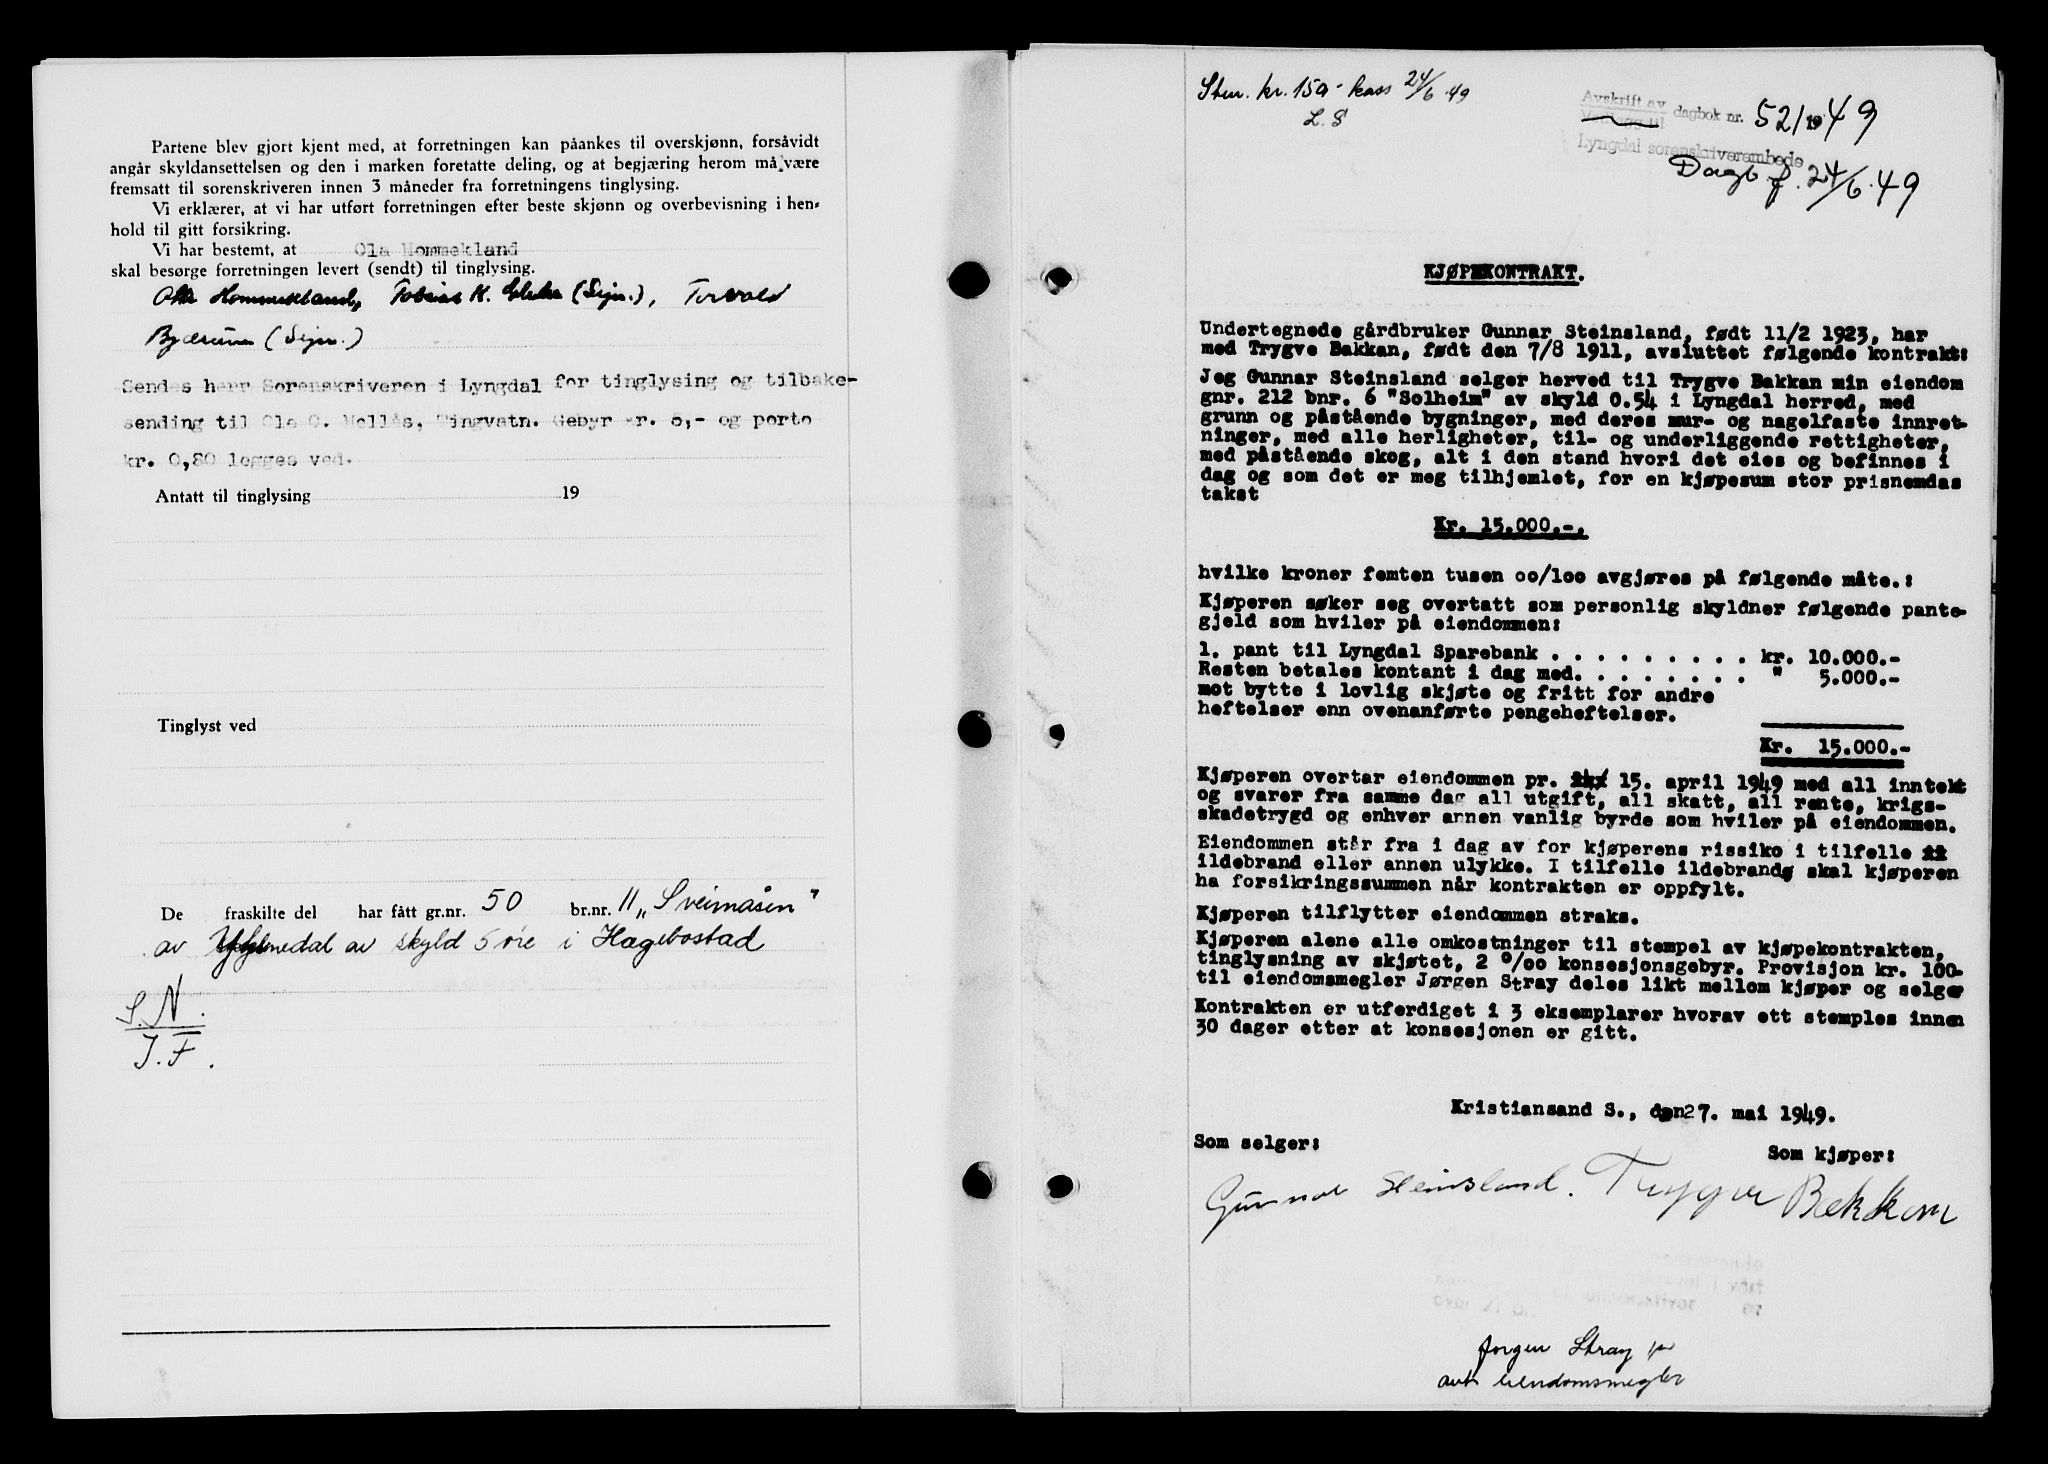 Partene blev gjort kjent med, at forretningen kan påankes til overskjønn, forsåvidt
angår skyldansettelsen og den i marken foretatte deling, og at begjæring herom må være
fremsatt til sorenskriveren innen 3 måneder fra forretningens tinglysing.
Vi erklærer, at vi har utført forretningen efter beste skjønn og overbevisning i hen-
hold til gitt forsikring.
Vi har bestemt, at Ola Hommekland
skal besørge forretningen levert (sendt) til tinglysing.
Hommekland, Tobias K. (Sign.), Torvald
(Sign.)
Sendes herr Sorenskriveren i Lyngdal for tinglysing og tilbake-
sending til Ola O. Mollås, Tingvatn. Gebyr kr. 6,- og porto
kr. 0,80 legges ved.
Antatt til tinglysing 19
Tinglyst ved
De fraskilte del har fått gr.nr. 50 br.nr. 11 „Sveimåsen"
av skyld 5 øre i Hægebostad
S. N.
J. F.
Stem. kr. 150- kass 24/6 49
L. S
Avskrift av
dagbok nr. 521 1949
Vedlegg til
Lyngdal sorenskriverembede
Dagb f. 24/6.49
KJØPEKONTRAKT.
Undertegnede gårdbruker Gunnar Steinsland, født 11/2 1923, har
med Trygve Bakkan, født den 7/8 1911, avsluttet følgende kontrakt:
Jeg Gunnar Steinsland selger herved til Trygve Bakkan min eiendom
gnr. 212 bnr. 6 "Solheim" av skyld 0.54 i Lyngdal herred, med
grunn og påstående bygninger, med deres mur- og nagelfaste innret-
ninger, med alle herligheter, til- og underliggende rettigheter,
med påstående skog, alt i den stand hvori det eies og befinnes i
dag og som det er meg tilhjemlet, for en kjøpesum stor prisnemdas
takst
Kr. 15.000.-.
hvilke kroner femten tusen oo/loo avgjøres på følgende måte.:
Kjøperen søker seg overtatt som personlig skyldner følgende pante-
gjeld som hviler på eiendommen:
1. pant til Lyngdal Sparebank . . . . . . . . . . kr. 10.000.-
Resten betales kontant i dag med. . . . . . . . . " 5.000.-
mot bytte i lovlig skjøte og fritt for andre
heftelser enn ovenanførte pengeheftelser.
Kr. 15.000.-
Kjøperen overtar eiendommen pr. 15. april 1949 med all inntekt
og svarer fra samme dag all utgift, all skatt, all rente, krigs-
skadetrygd og enhver annen vanlig byrde som hviler på eiendommen.
Eiendommen står fra i dag av for kjøperens rissiko i tilfelle
ildebrand eller annen ulykke. I tilfelle ildebrand skal kjøperen
ha forsikringssummen når kontrakten er oppfylt.
Kjøperen tilflytter eiendommen straks.
Kjøperen alene alle omkostninger til stempel av kjøpekontrakten,
tinglysning av skjøtet, 2 o/oo konsesjonsgebyr. Provisjon kr. 100-
til eiendomsmegler Jørgen Stray deles likt mellom kjøper og selger
Kontrakten er utferdiget i 3 eksemplarer hvorav ett stemples innen
30 dager etter at konsesjonen er gitt.
Kristiansand S., den 27. mai 1949.
Som selger:
Som kjøper:
Gunnar Steinsland. Trygve Bakkan
Jørgen Stray
aut eiendomsmegler